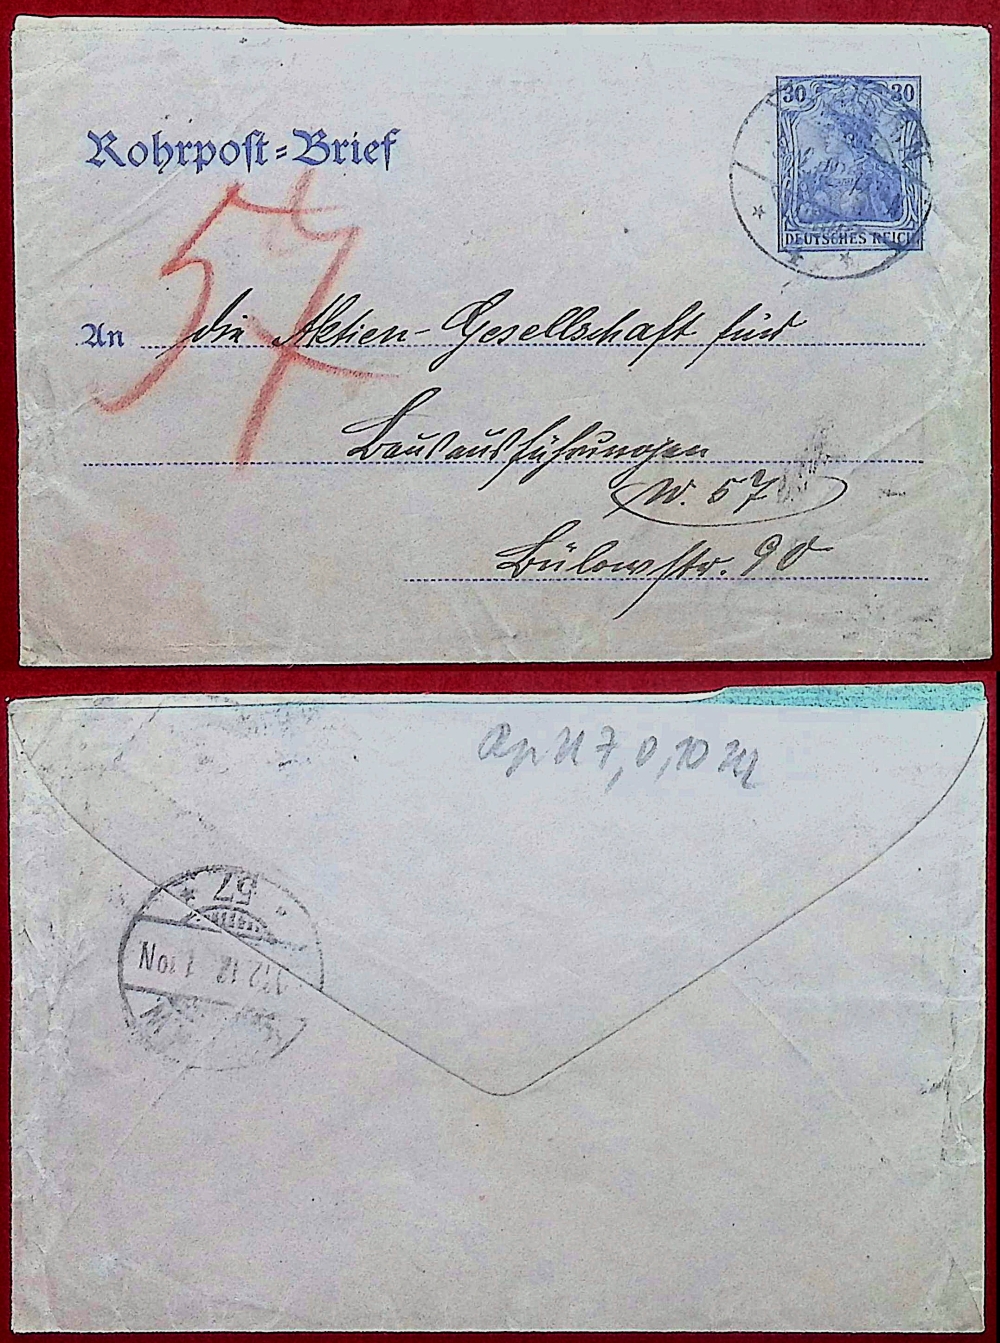 Rohrpost-Brief
30 30
DEUTSCHES REICH
57
An die Aktien-Gesellschaft für
Bauausführungen
W. 57
Bülowstr. 90
57
12.12 1-10N